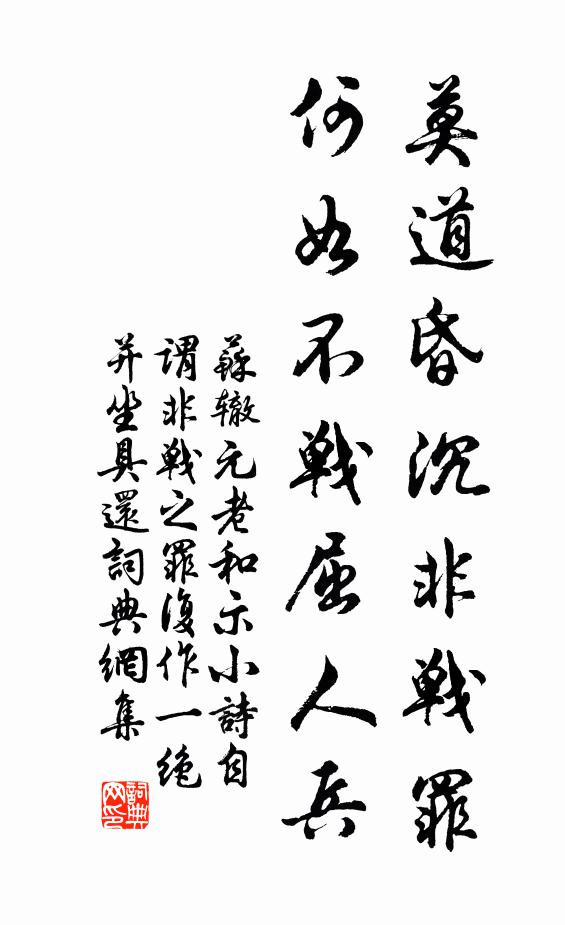 莫道昏沉非戰罪
何如不戰屈人兵
蘇辙元老和示小詩自
謂非戰之罪復作一绝
并坐具還詞典網集
詞典网印